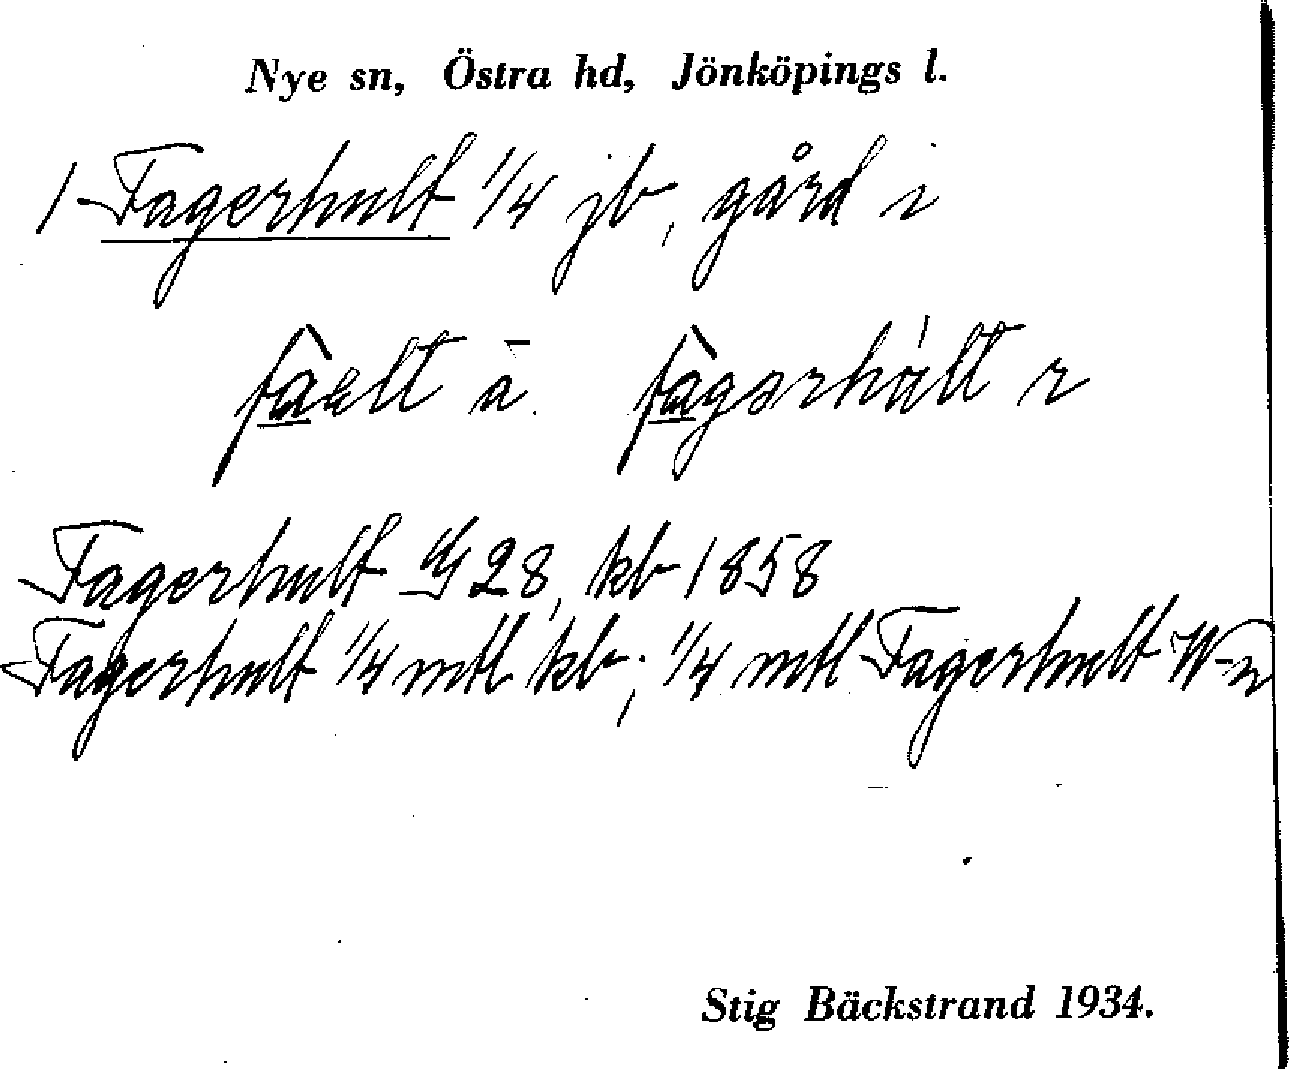 Nye sn, Östra hd, Jönköpings l.
1 Fagerhult 1/4 jb, gård i
fâelt ā. fàgərhált r
Fagerhult GS 28, kb 1858
Fagerhult 1/4 mtl kb; 1/4 mtl Fagerhult W-n
Stig Bäckstrand 1934.